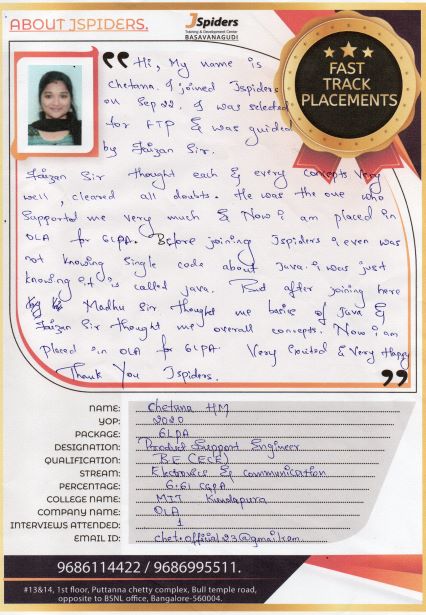 ABOUT JSPIDERS.
JSpiders
Training & Development Center
BASAVANAGUDI
FAST
TRACK
PLACEMENTS
Hi, My name is
Chetana. I joined Jspiders
on Sep 22. I was selected
for FTP & was guided
by Faizan Sir.
Faizan Sir thought each & every concepts very
well, cleared all doubts. He was the one who
supported me very much & Now i am placed in
OLA for 6LPA. Before joining Jspiders i even was
not knowing single code about Java. i was just
knowing it is called java. But after joining here
Madhu Sir thought me basic of Java &
Faizan Sir thought me overall concepts. Now i am
placed in OLA for 6LPA Very Excited & Very Happy
Thank You Jspiders.
NAME: Chetana HM
YOP: 2020
PACKAGE: 6LPA
DESIGNATION: Product Support Engineer
QUALIFICATION: B.E (ECE)
STREAM: Electronics & Communication
PERCENTAGE: 6.61 CGPA
COLLEGE NAME: MIT Kundapura
COMPANY NAME: OLA
INTERVIEWS ATTENDED: 1
EMAIL ID: chet.official23@gmail.com
9686114422 / 9686995511.
#13&14, 1st floor, Puttanna chetty complex, Bull temple road,
opposite to BSNL office, Bangalore-560004.